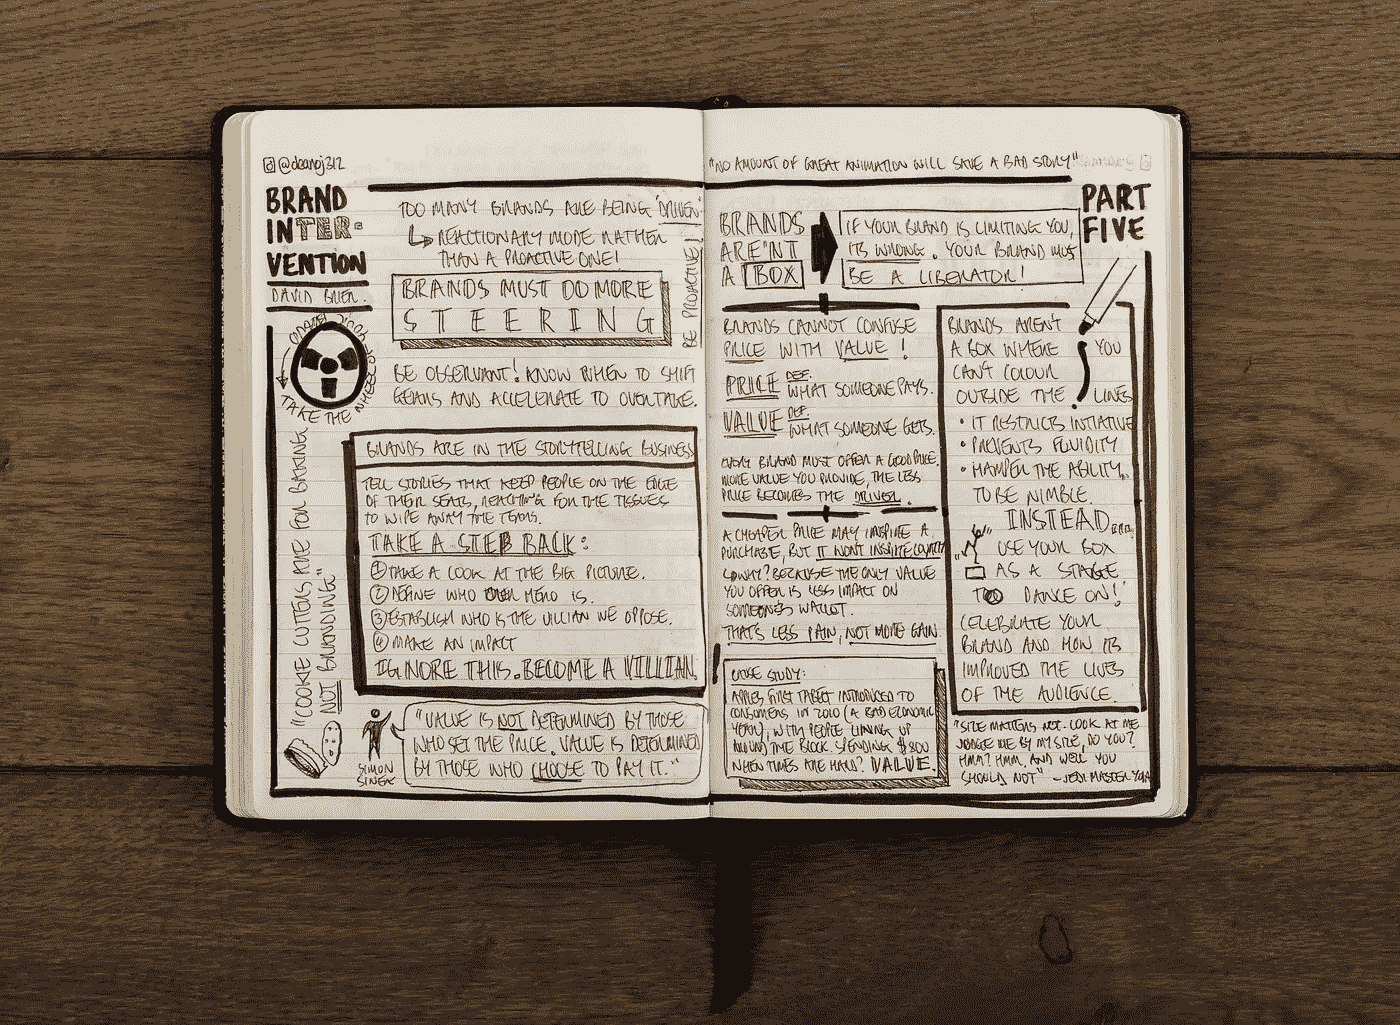 @deanoj312
BRAND
INTER-
VENTION
DAVID BRIER.
TAKE THE WHEEL OF YOUR BRAND
"COOKIE CUTTERS ARE FOR BAKING
NOT BRANDING"
TOO MANY BRANDS ARE BEING 'DRIVEN'
REACTIONARY MODE RATHER
THAN A PROACTIVE ONE!
BE PROACTIVE!
BRANDS MUST DO MORE
STEERING
BE OBSERVANT! KNOW WHEN TO SHIFT
GEARS AND ACCELERATE TO OVERTAKE.
BRANDS ARE IN THE STORYTELLING BUSINESS
TELL STORIES THAT KEEP PEOPLE ON THE EDGE
OF THEIR SEATS, REACHING FOR THE TISSUES
TO WIPE AWAY THE TEARS.
TAKE A STEP BACK:
① TAKE A LOOK AT THE BIG PICTURE.
② DEFINE WHO HERO IS.
③ ESTABLISH WHO IS THE VILLIAN WE OPPOSE.
④ MAKE AN IMPACT
IGNORE THIS. BECOME A VILLIAN.
SIMON
SINEK
"VALUE IS NOT DETERMINED BY THOSE
WHO SET THE PRICE. VALUE IS DETERMINED
BY THOSE WHO CHOOSE TO PAY IT."
"NO AMOUNT OF GREAT ANIMATION WILL SAVE A BAD STORY"
PART
FIVE
BRANDS
ARE'NT
A BOX
IF YOUR BRAND IS LIMITING YOU,
ITS WRONG. YOUR BRAND MUS
BE A LIBERATOR!
BRANDS CANNOT CONFUSE
PRICE WITH VALUE!
PRICE DEF. WHAT SOMEONE PAYS.
VALUE DEF. WHAT SOMEONE GETS.
EVERY BRAND MUST OFFER A GOOD PRICE.
MORE VALUE YOU PROVIDE, THE LESS
PRICE BECOMES THE DRIVER.
A CHEAPER PRICE MAY INSPIRE A
PURCHASE, BUT IT WONT INSPIRE
WHY? BECAUSE THE ONLY VALUE
YOU OFFER IS LESS IMPACT ON
SOMEONE'S WALLET.
THAT'S LESS PAIN, NOT MORE GAIN
CASE STUDY:
APPLES FIRST TABLET INTRODUCED TO
CONSUMERS IN 2010 (A BAD ECONOMIC
YEAR), WITH PEOPLE LINING UP
AROUND THE BLOCK SPENDING $800
WHEN TIMES ARE HARD? VALUE.
BRANDS AREN'T
A BOX WHERE YOU
CAN'T COLOUR
OUTSIDE THE LINES
• IT RESTRICTS INTIATIVE
• PREVENTS FLUIDITY
• HAMPER THE ABILITY
TO BE NIMBLE.
INSTEAD...
USE YOUR BOX
AS A STAGE
TO DANCE ON!
CELEBRATE YOUR
BRAND AND HOW ITS
IMPROVED THE LIVES
OF THE AUDIENCE.
"SIZE MATTERS NOT. LOOK AT ME
JUDGE ME BY MY SIZE, DO YOU?
HMM? HMM. AND WELL YOU
SHOULD NOT" – JEDI MASTER YODA